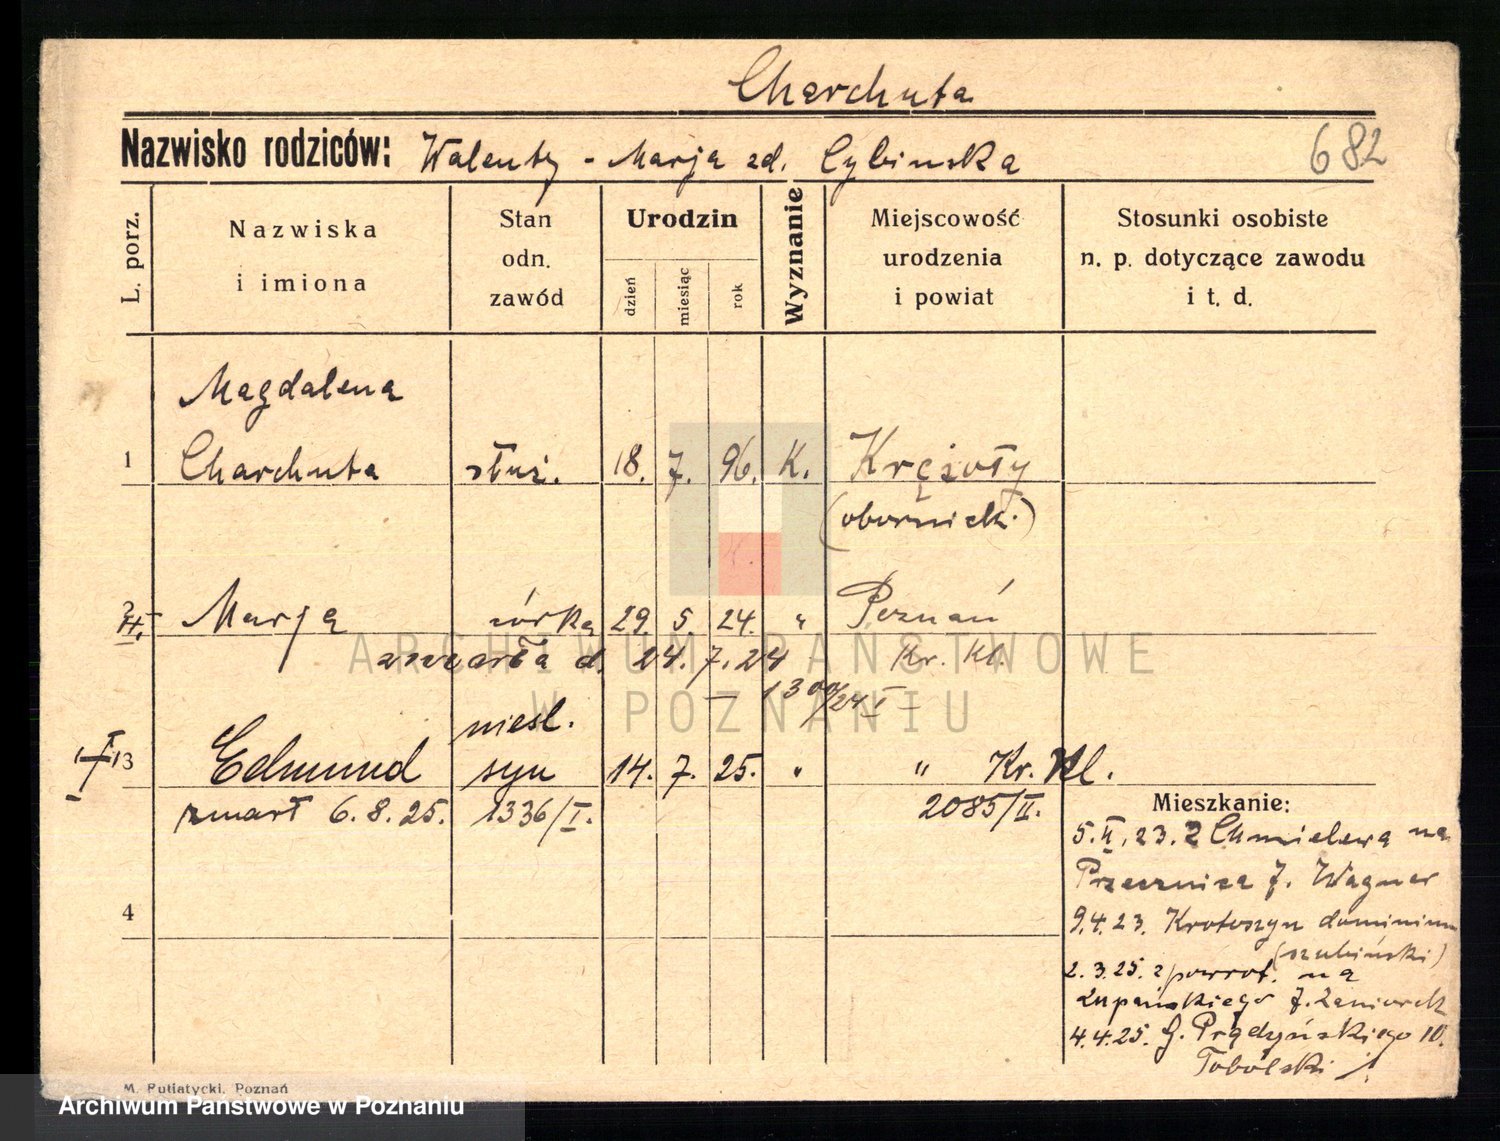 Charchuta
Nazwisko rodziców: Walenty - Marja zd. Cybinska
682
L. porz.
Nazwiska
i imiona
Stan
odn.
zawód
Urodzin
dzień
miesiąc
rok
Wyznanie
Miejscowość
urodzenia
i powiat
Stosunki osobiste
n. p. dotyczące zawodu
i t. d.
Magdalena
1 Charchuta służ. 18. 7. 96. K. Krężoły
(obornick.)
2 Marja córka 29. 5. 24. " Poznań
zmarła d. 24. 7. 24 Kr. Kl.
1300/24 I
niesl.
3 Edmund syn 14. 7. 25. " " Kr. Kl.
zmarł 6. 8. 25. 1336/I. 2085/II.
4
Mieszkanie:
5. II. 23. z Chmielewa na
Przecznica f. Wagner
9.4.23. Krotoszyn dominium
(szubiński)
2.3.25. z powrot. na
Zupańskiego f.
4.4.25. G. Prądyńskiego 10.
Tobolski f.
M. Putiatycki, Poznań
ARCHIWUM PAŃSTWOWE
W POZNANIU
Archiwum Państwowe w Poznaniu